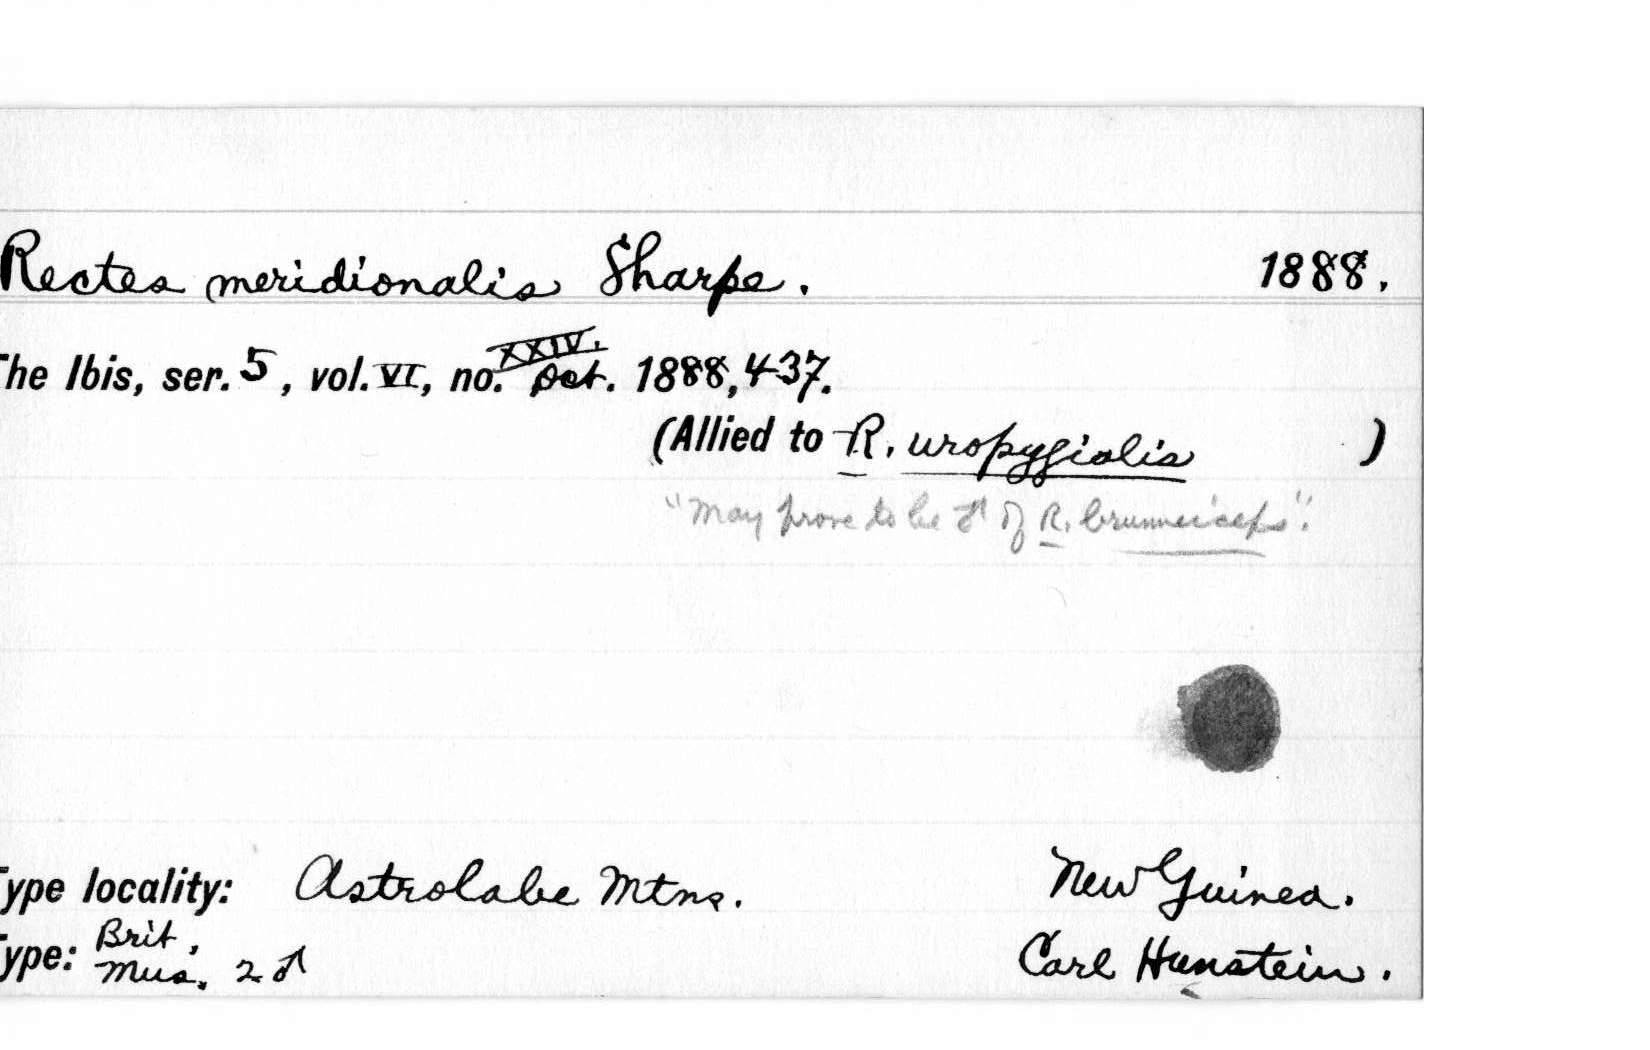 Rectes meridionalis Sharpe. 1888.
The Ibis, ser. 5, vol. VI, no. XXIV. Oct. 1888, 437.
(Allied to R. uropygialis )
"May prove to be ♂ of R. brunneiceps".
Type locality: Astrolabe Mtns. New Guinea.
Type: Brit. Mus. 2 ♂ Carl Hunstein.